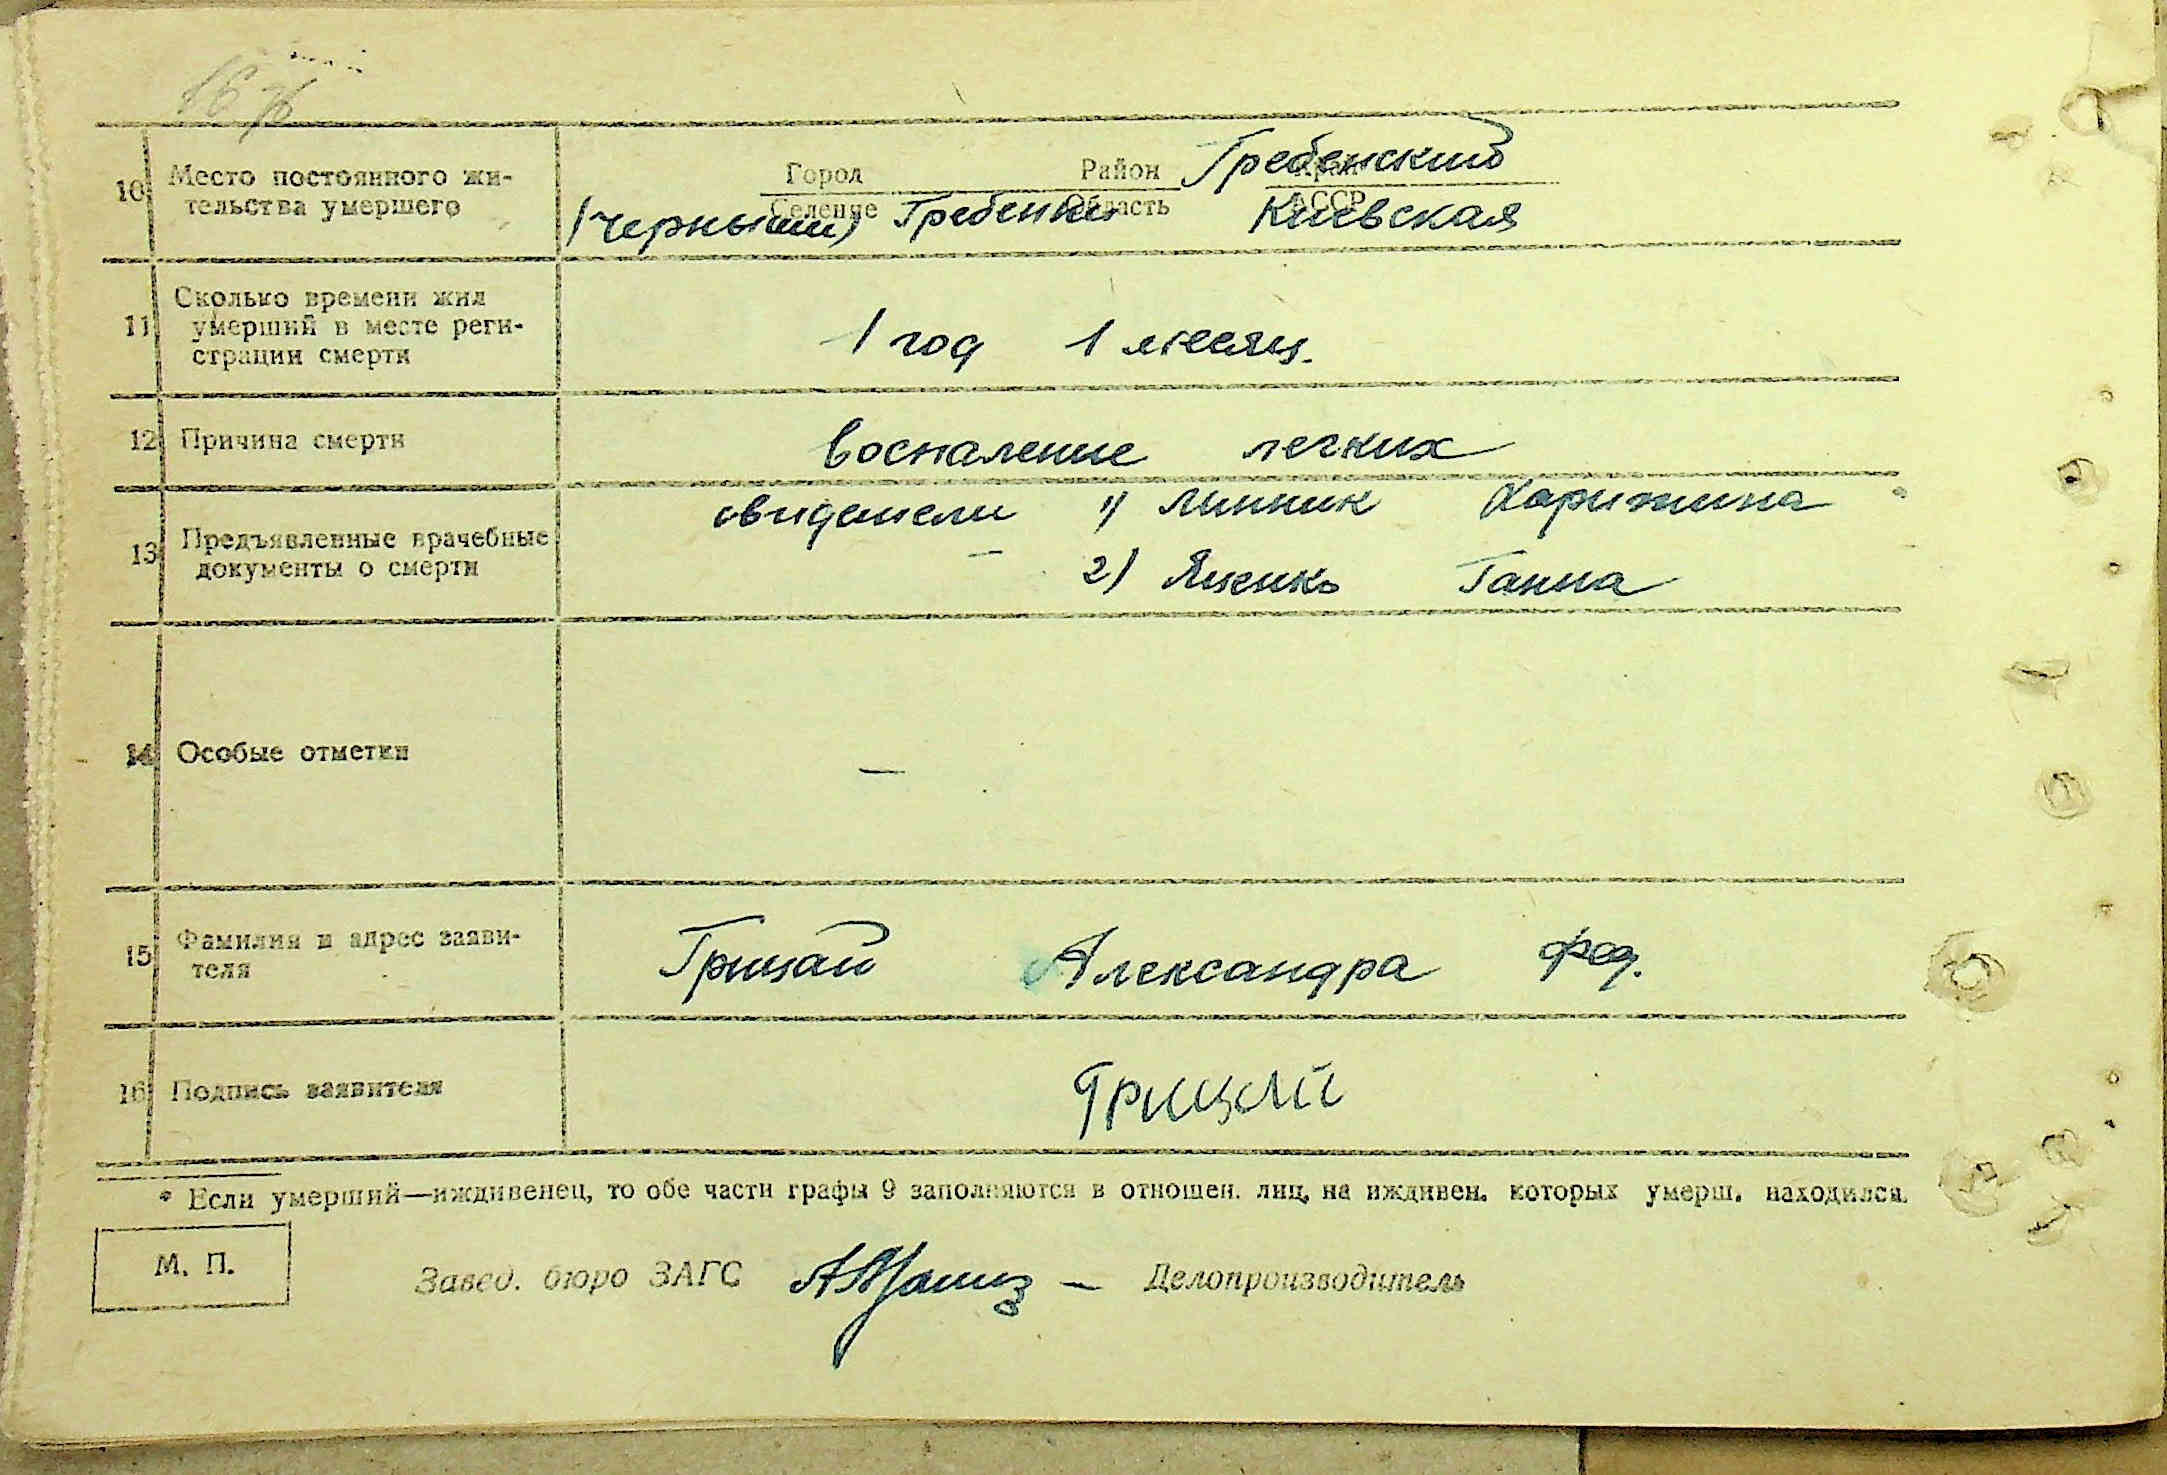 10 Место постоянного жи-
тельства умершего
Город Район Гребенский Край
Селение Гребенки Область АССР Киевская
11 Сколько времени жил
умерший в месте реги-
страции смерти
1 год 1 месяц.
12 Причина смерти
воспаление легких
13 Предъявленные врачебные
документы о смерти
свидетели 1) Линник Харитина
2) Ганна
14 Особые отметки
—
15 Фамилия и адрес заяви-
теля
Грицай Александра Фед.
16 Подпись заявителя
Грицай
* Если умерший—иждивенец, то обе части графы 9 заполняются в отношен. лиц, на иждивен. которых умерш. находился.
М. П.
Завед. бюро ЗАГС — Делопроизводитель